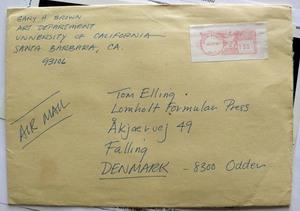 GARY H BROWN
ART DEPARTMENT
UNIVERSITY OF CALIFORNIA
SANTA BARBARA, CA.
93106
AIR MAIL
Tom Elling.
Lomholt Formular Press
Åkjærvej 49
Falling
DENMARK - 8300 Odder